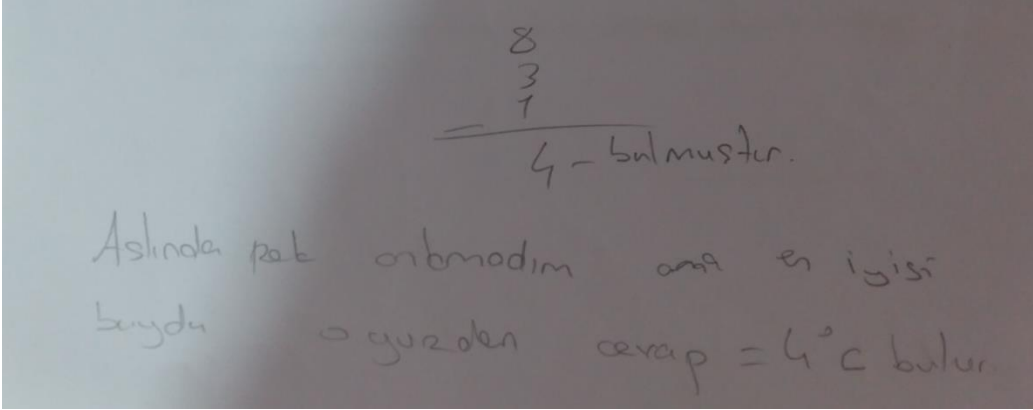 8
3
1
—
4 - bulmuştur.
Aslında pek anlamadım ama en iyisi
buydu o yüzden cevap = 4°C bulur